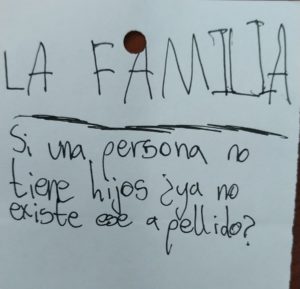 LA FAMILIA
Si una persona no
tiene hijos ¿ya no
existe ese apellido?